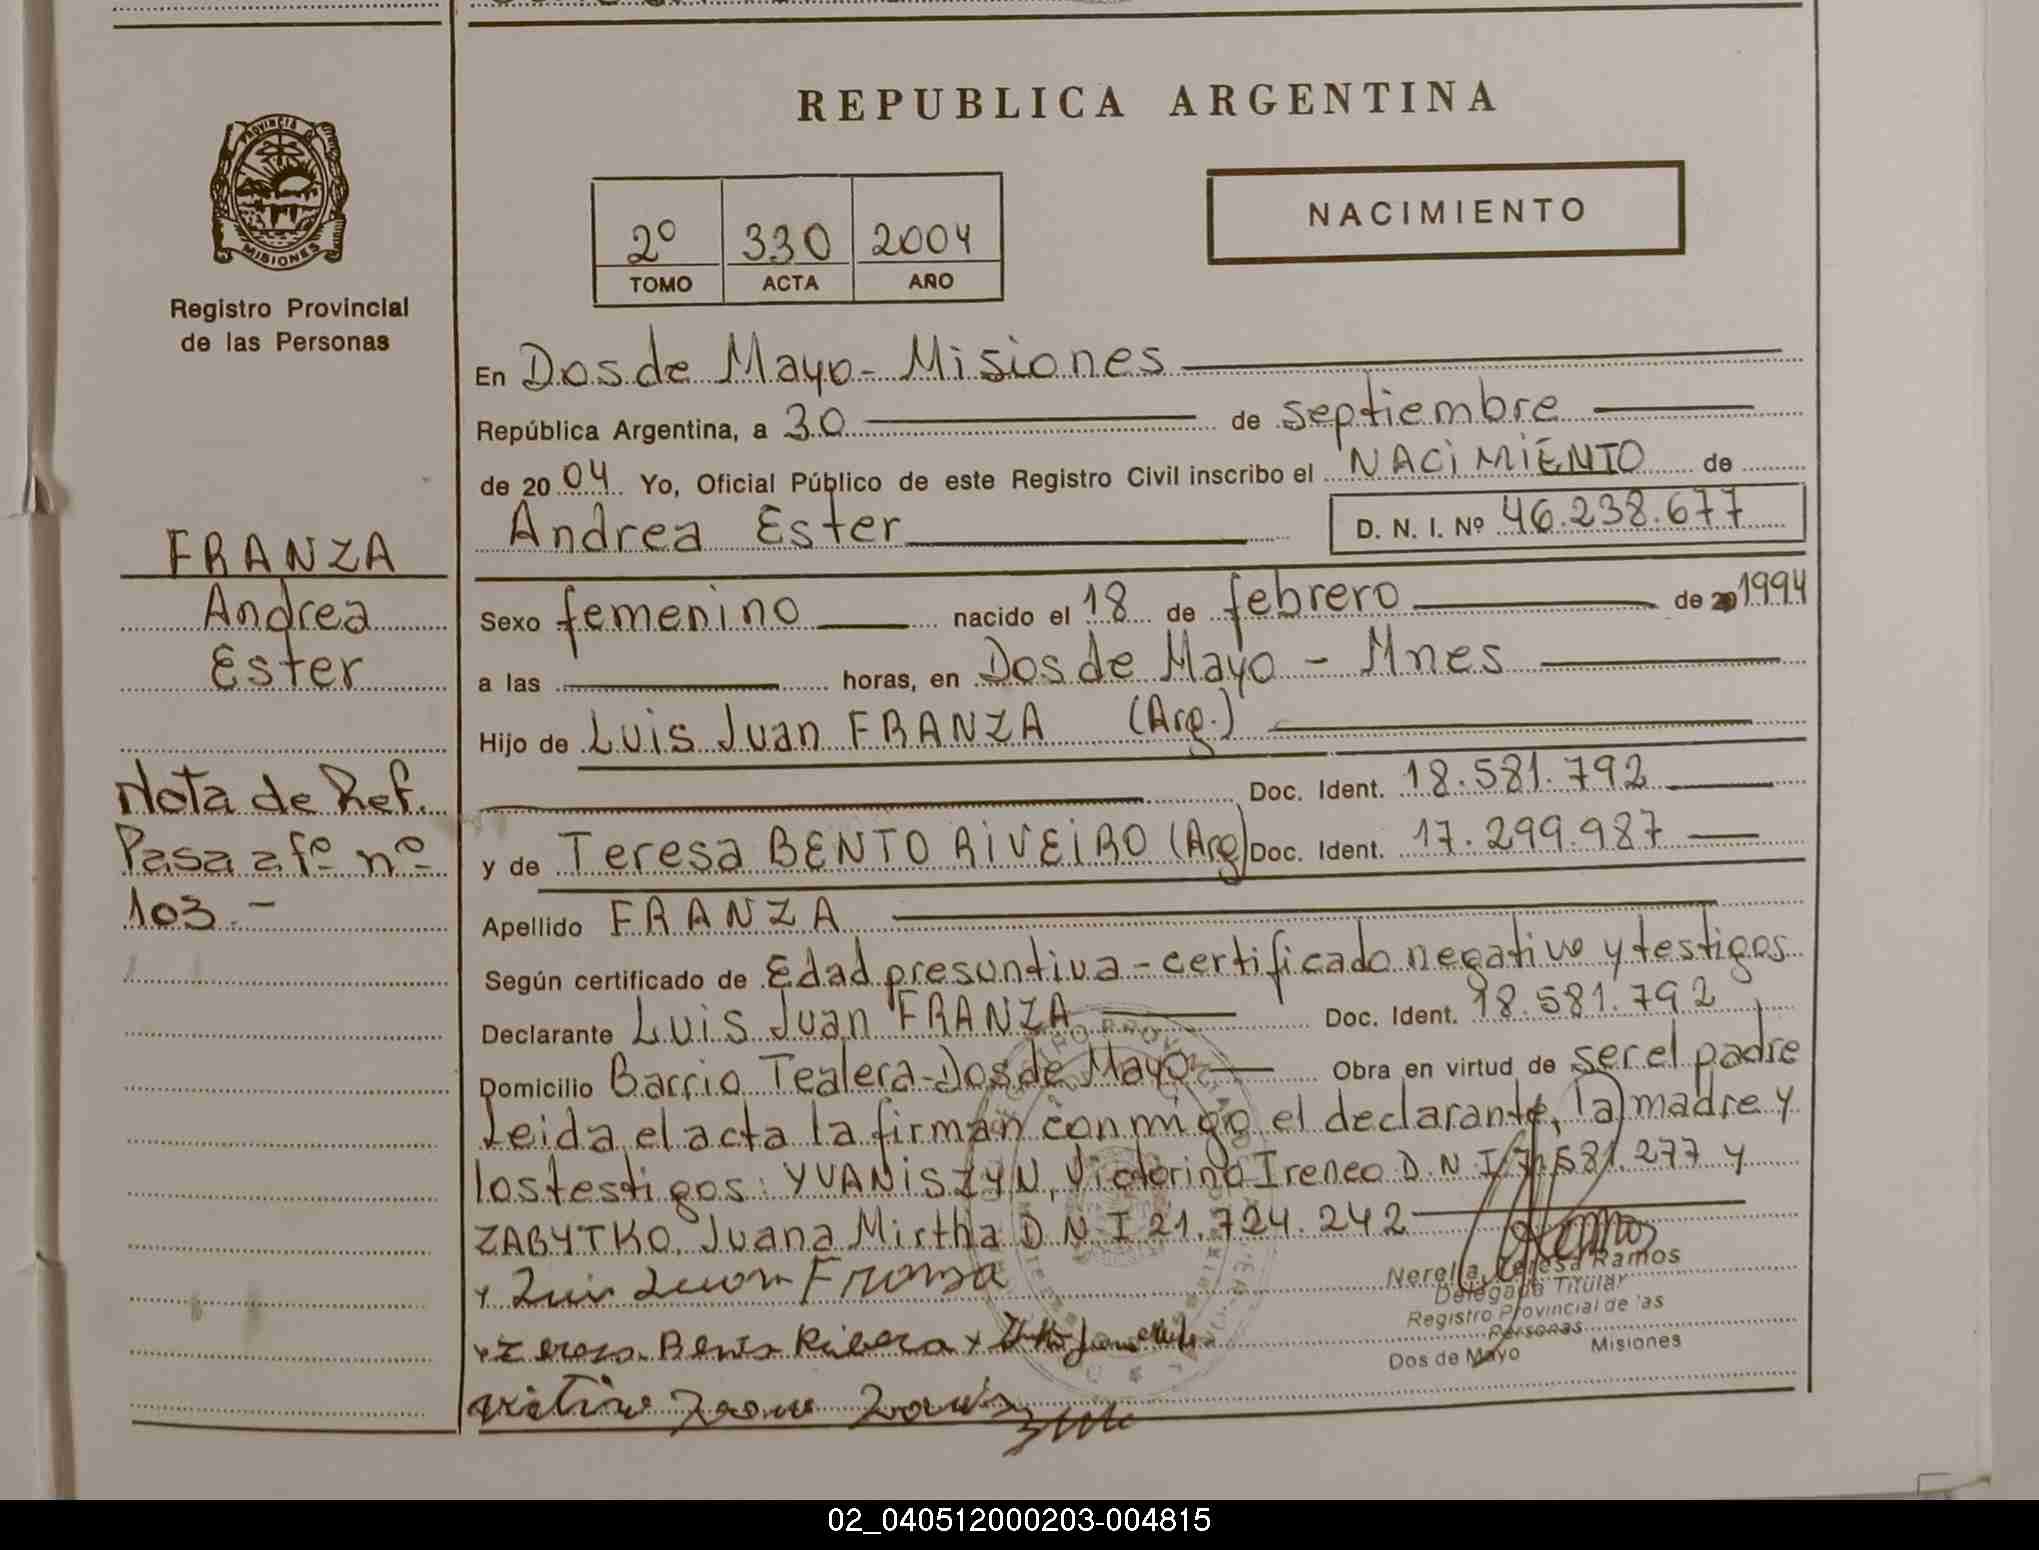 REPUBLICA ARGENTINA
PROVINCIA D
MISIONES
Registro Provincial
de las Personas
2º 330 2004
TOMO ACTA AÑO
NACIMIENTO
En Dos de Mayo - Misiones
República Argentina, a 30 de septiembre
de 2004 Yo, Oficial Público de este Registro Civil inscribo el NACIMIENTO de
Andrea Ester D. N. I. Nº 46.238.677
FRANZA
Andrea
Ester
Nota de Ref.
Pasa a fº nº
103.-
Sexo femenino nacido el 18 de febrero de 1994
a las horas, en Dos de Mayo - Mnes
Hijo de Luis Juan FRANZA (Arg.)
Doc. Ident. 18.581.792
y de Teresa BENTO RIVEIRO (Arg) Doc. Ident. 17.299.987
Apellido FRANZA
Según certificado de Edad presuntiva - certificado negativo y testigos
Declarante Luis Juan FRANZA Doc. Ident. 18.581.792
Domicilio Barrio Tealera - Dos de Mayo Obra en virtud de ser el padre
Leida el acta la firman conmigo el declarante, la madre y
los testigos: YVANISZYN, Victorino Ireneo D.N.I 581.277 y
ZABYTKO, Juana Mirtha D N I 21.724.242
Luis Juan Franza
Nerella Teresa Ramos
Delegada Titular
Registro Provincial de las
Personas
Dos de Mayo Misiones
02_040512000203-004815